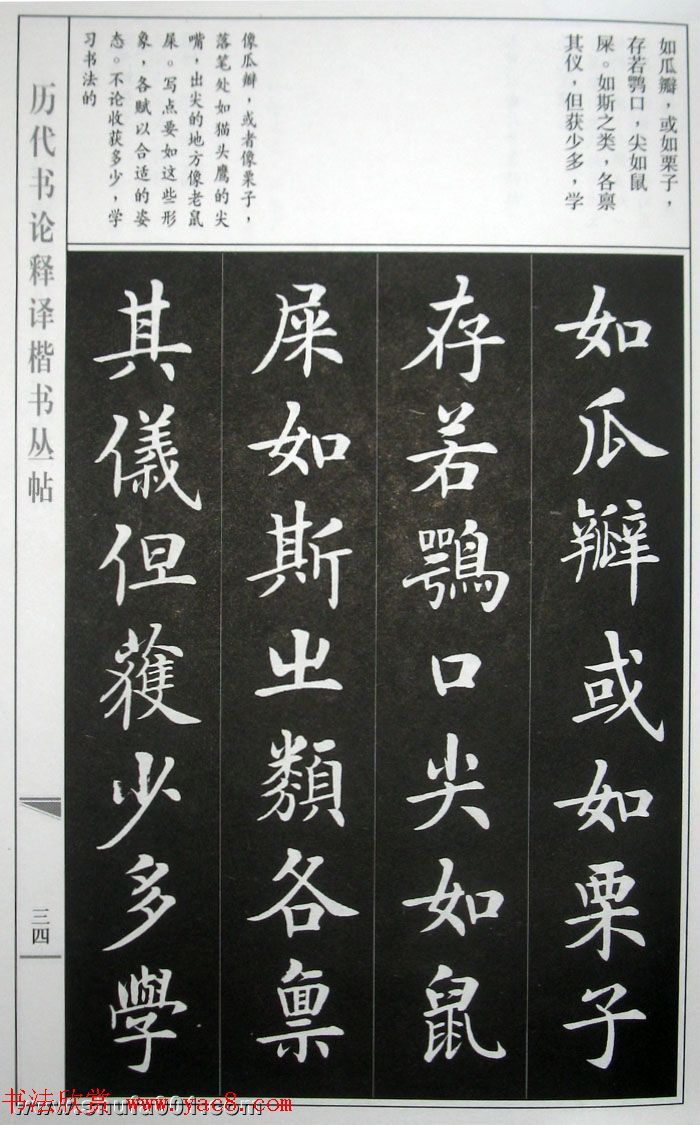 如瓜瓣，或如栗子，
存若鹗口，尖如鼠
屎。如斯之类，各禀
其仪，但获少多，学
像瓜瓣，或者像栗子，
落笔处如猫头鹰的尖
嘴，出尖的地方像老鼠
屎。写点要如这些形
象，各赋以合适的姿
态。不论收获多少，学
习书法的
如瓜瓣或如栗子
存若鶚口尖如鼠
屎如斯之類各禀
其儀但獲少多學
历代书论释译楷书丛帖
三四
书法欣赏 www.yac8.com